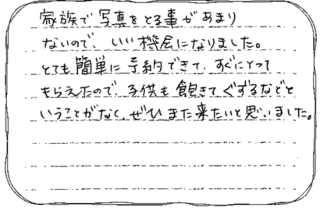 家族で写真をとる事があまり
ないので、いい機会になりました。
とても簡単に予約できて、すぐにとって
もらえたので、子供も飽きてぐずるなどと
いうことがなく、ぜひまた来たいと思いました。